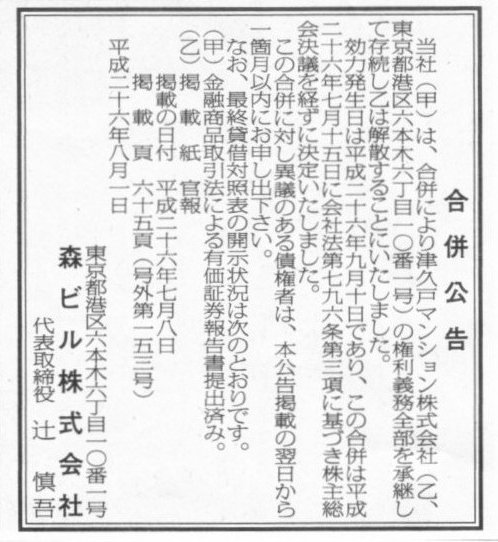 合併公告
当社（甲）は、合併により津久戸マンション株式会社（乙、
東京都港区六本木六丁目一〇番一号）の権利義務全部を承継し
て存続し乙は解散することにいたしました。
効力発生日は平成二十六年九月十日であり、この合併は平成
二十六年七月十五日に会社法第七九六条第三項に基づき株主総
会決議を経ずに決定いたしました。
この合併に対し異議のある債権者は、本公告掲載の翌日から
一箇月以内にお申し出下さい。
なお、最終貸借対照表の開示状況は次のとおりです。
（甲）金融商品取引法による有価証券報告書提出済み。
（乙）掲載紙 官報
掲載の日付 平成二十六年七月八日
掲載頁 六十五頁（号外第一五三号）
平成二十六年八月一日
東京都港区六本木六丁目一〇番一号
森ビル株式会社
代表取締役 辻 慎吾